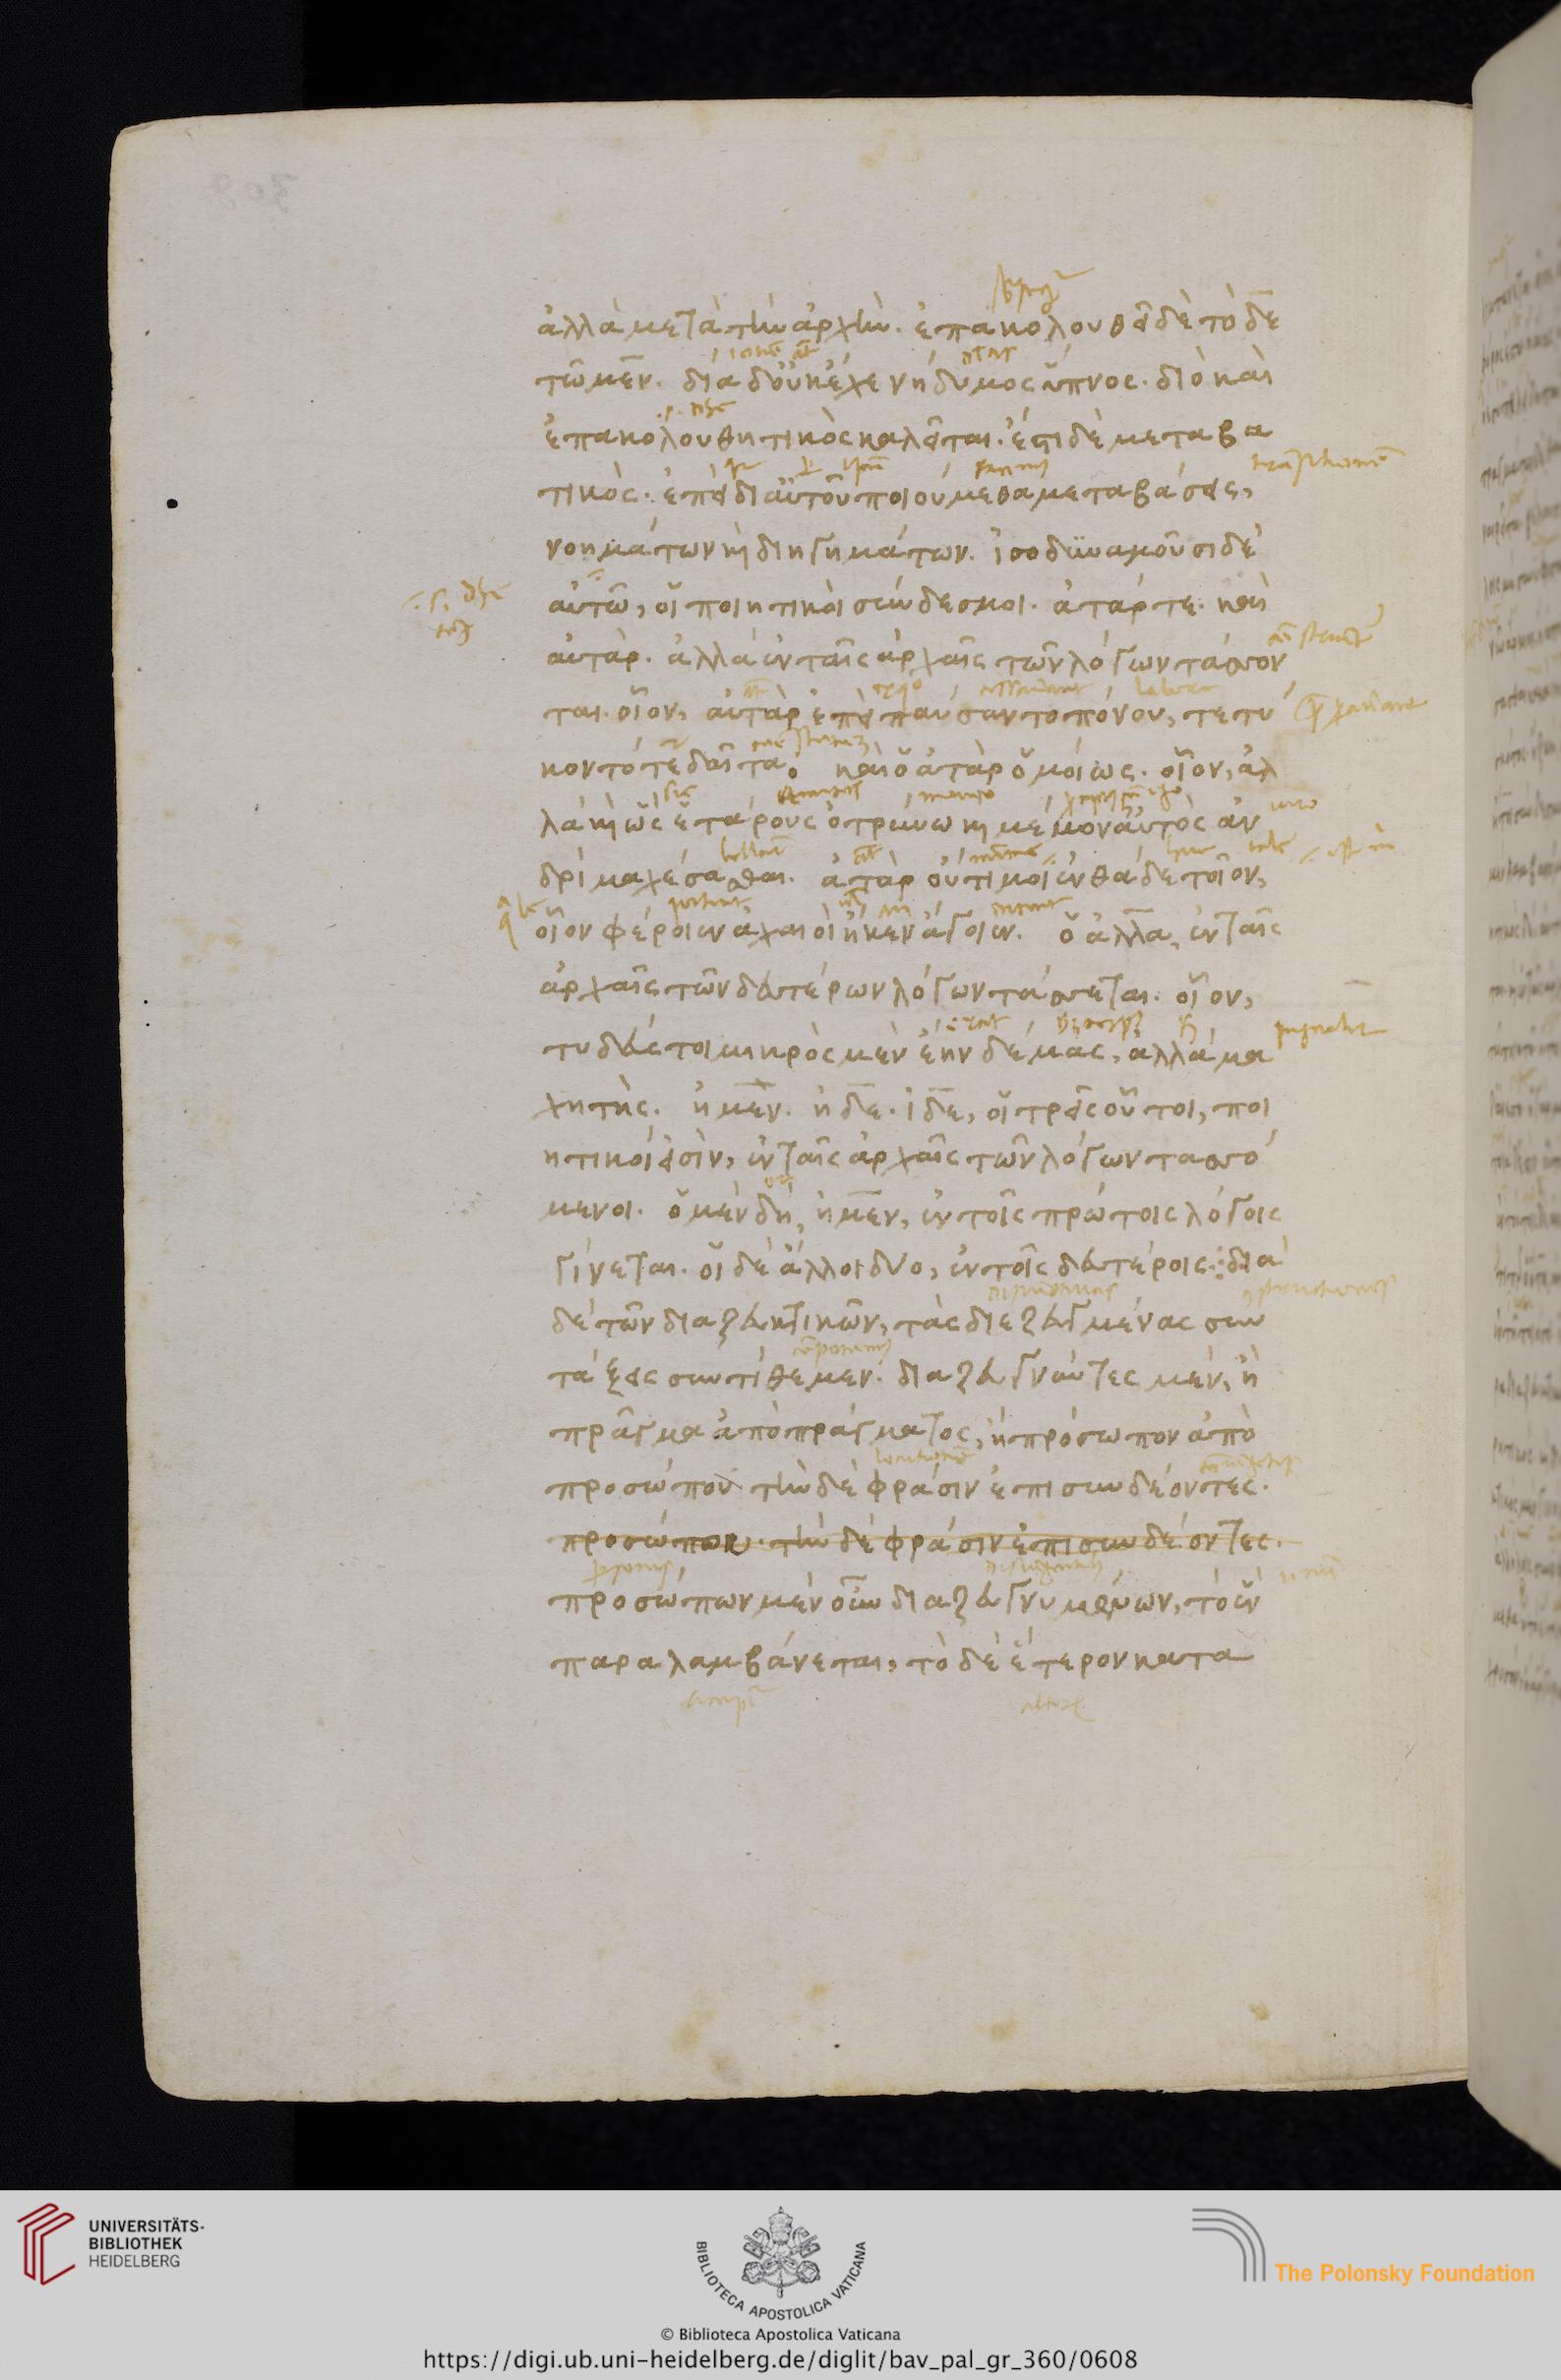 ἀλλὰ μετὰ τὴν ἀρχήν. ἐπακολουθεῖ δὲ τὸ δὲ
τῶ μέν. δία δ' οὐκ ἔχε νήδυμος ὕπνος. διὸ καὶ
ἐπακολουθητικὸς καλεῖται. ἔστι δὲ μεταβα
τικός. ἐπεὶ δι αὐτοῦ ποιούμεθα μεταβάσεις,
νοημάτων καὶ διηγημάτων. ἰσοδυναμοῦσι δὲ
αὐτῶ, οἵ ποιητικοὶ σύνδεσμοι. ἀτάρ τε. καὶ
αὐτάρ. ἀλλὰ ἐν ταῖς ἀρχαῖς τῶν λόγων τάσσον
ται. οἷον, αὐτὰρ ἐπεὶ παύσαντο πόνου, τετύ
κοντό τε δαῖτα. καὶ ὁ ἀτὰρ ὁμοίως. οἷον, ἀλ
λὰ καὶ ὣς ἑτάρους ὀτρύνω καὶ μέμον αὐτὸς ἀν
δρὶ μαχέσασθαι. ἀτὰρ οὔτι μοι ἐνθάδε τοῖον,
οἷον φέροιεν ἀχαιοὶ ἤ κεν ἄγοιεν. ὁ ἀλλὰ, ἐν ταῖς
ἀρχαῖς τῶν δευτέρων λόγων τάσσεται. οἷον,
τυδεύς τοι μικρὸς μὲν ἔην δέμας, ἀλλὰ μα
χητής. ἠμέν. ἠδέ. ἰδέ, οἵ τρεῖς οὗτοι, ποι
ητικοί εἰσιν, ἐν ταῖς ἀρχαῖς τῶν λόγων τασσό
μενοι. ὁ μὲν δὴ, ἠμέν, ἐν τοῖς πρώτοις λόγοις
γίνεται. οἵ δὲ ἄλλοι δύο, ἐν τοῖς δευτέροις: διὰ
δὲ τῶν διαζευκτικῶν, τὰς διεζευγμένας συν
τάξεις συντίθεμεν. διαζευγνύντες μέν, ἢ
πρᾶγμα ἀπὸ πράγματος, ἢ πρόσωπον ἀπὸ
προσώπου. τὴν δὲ φράσιν ἐπισυνδέοντες.
προσώπου. τὴν δὲ φράσιν ἐπισυνδέοντες.
προσώπων μὲν οὖν διαζευγνυμένων, τὸ ἓν
παραλαμβάνεται, τὸ δὲ ἕτερον κατα
UNIVERSITÄTS-
BIBLIOTHEK
HEIDELBERG
BIBLIOTECA APOSTOLICA VATICANA
The Polonsky Foundation
© Biblioteca Apostolica Vaticana
https://digi.ub.uni-heidelberg.de/diglit/bav_pal_gr_360/0608